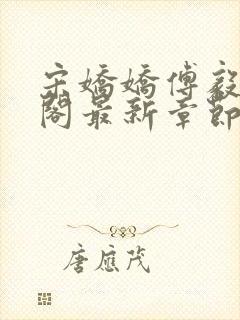 宋嬌嬌傅毅
閣最新章節
唐應茂